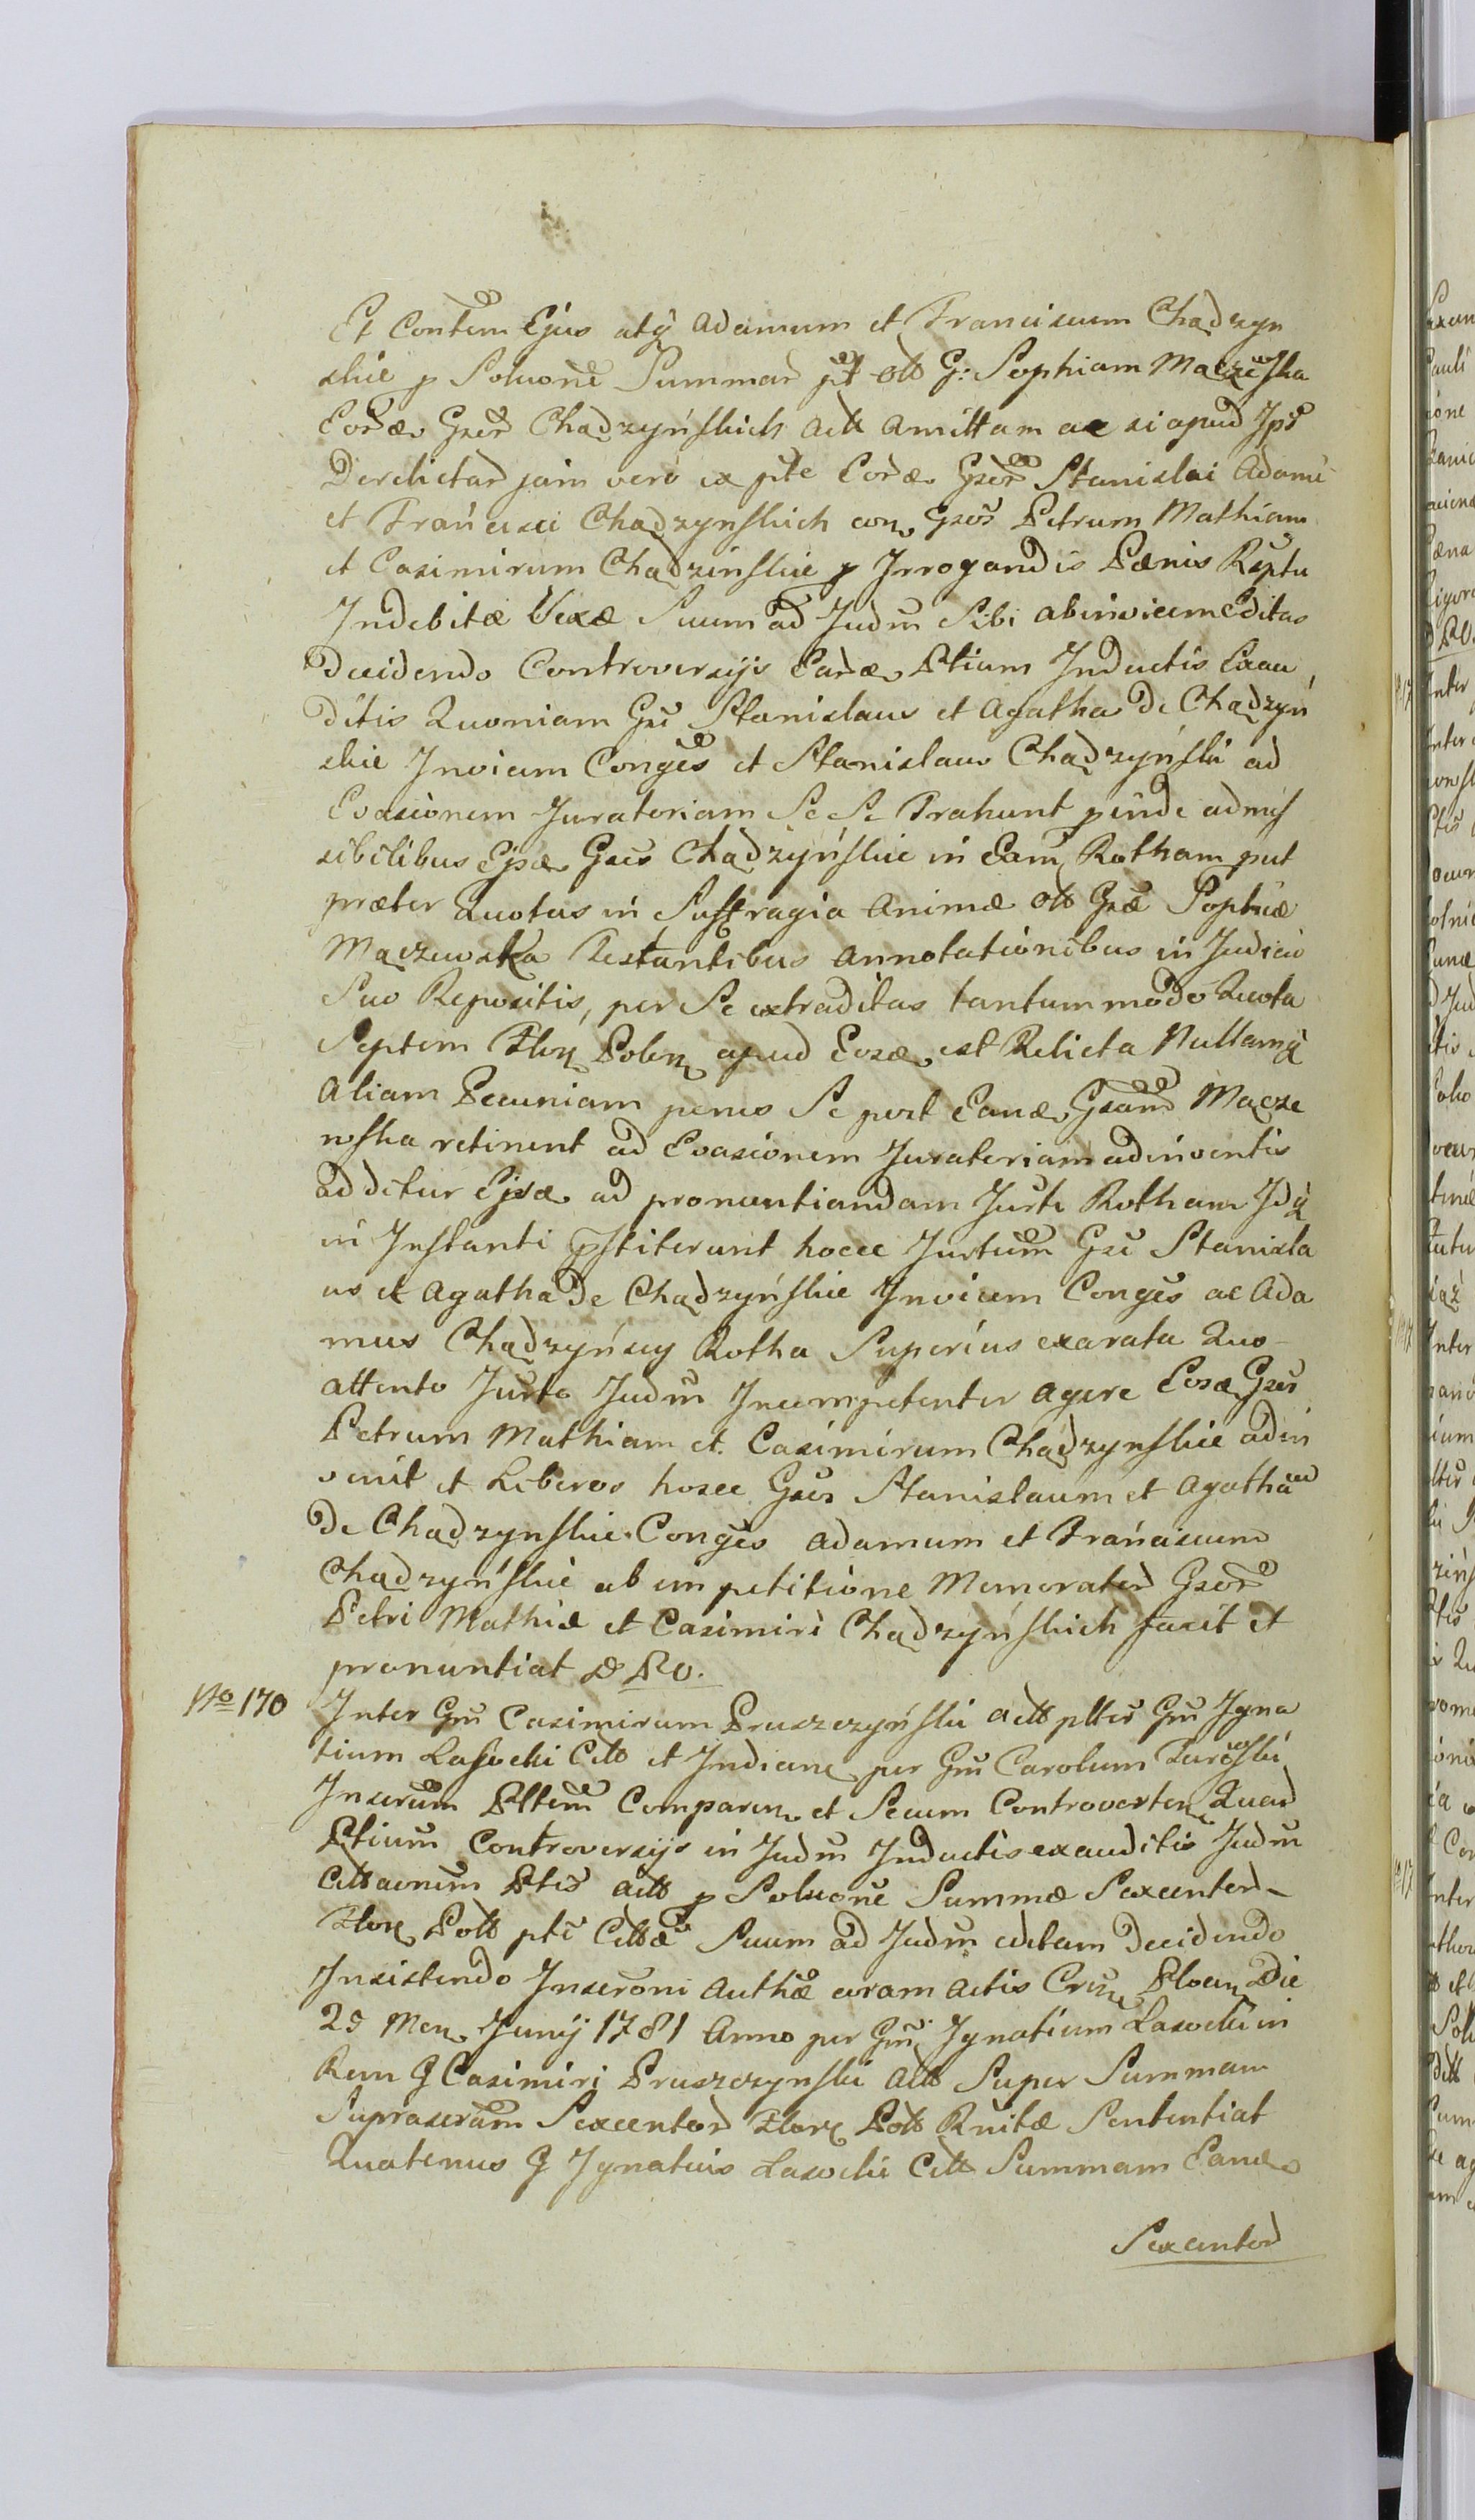 Et Contem Ejus atq Adamum et Franciscum Chądzyn
skie p Soluone Summar pt olt G: Sophiam Mączewska
Eorde Gser Chądzyńskich Actt Amittam ac si apud Ips
Derelictar jam vero ex pte Eorde Gser Stanislai Adami
et Francisci Chądzynskich con Gsos Petrum Mathiam
et Casimirum Chądzinskie p Irrogandis Pænis Rptu
Indebitæ Vexæ Suum ad Judm Sibi abinvicem Editas
Decidendo Controversijs Earde Ptium Inductis Exau
ditis Quoniam Gsi Stanislaus et Agatha de Chądzyń
skie Invicem Conges et Stanislaus Chądzyński ad
Evasionem Juratoriam Se Se Trahunt pinde admis
sibilibus Ejsde Gsis Chądzyńskie in Eam Rotham put
præter Quotas in Suffragia Animæ olt Gsæ Sophiæ
Mączewska Testantibus Annotationibus in Judicio
Suo Repositis, per Se extraditas tantummodo Quota
Septem Flor Polon apud Eosde est Relicta Nullamq
Aliam Pecuniam penes Se post Eande Gsam Mącze
wska retinent ad Evasionem Juratoriam adinventis
additur Ejsde ad pronuntiandam Jurti Rotham Idq
in Instanti pstiterunt hocce Jurtum Gsi Stanisla
us et Agatha de Chądzyńskie Invicem Conges ac Ada
mus Chądzyńscy Rotha Superius exarata Quo
attento Jurto Judm Incompetenter agere Eosde Gsos
Petrum Mathiam et Casimirum Chądzynskie adin
venit et Liberos hosce Gsos Stanislaum et Agatham
de Chądzynskie Conges Adamum et Franciscum
Chądzyńskie ab impetitione Memorator Gsor
Petri Mathiæ et Casimiri Chądzyńskich facit et
pronuntiat D P V.
No 170 Inter Gm Casimirum Pruszczyński Actt pltr Gm Igna
tium Lasocki Citt et Indicane per Gm Carolum Turowski
Inscrum Pltem Comparen et Secum Controverten Quar
Ptium Controversijs in Judm Inductis exauditis Judm
Cittaonem Ptis Actt p Soluone Summæ Sexcentor
Flor Poll pti Cittæ Suum ad Judm editam Decidendo
Insistendo Inscroni Authæ coram Actis Crsn Plocen Die
25 Men Junij 1781 Anno per Gm Ignatium Lasocki in
Rem G Casimiri Pruszczynski Actt Super Summam
Suprascram Sexcentor Flor Poll Rnitæ Sententiat
Quatenus G Ignatius Lasocki Citt Summam Eande
Sexcentor